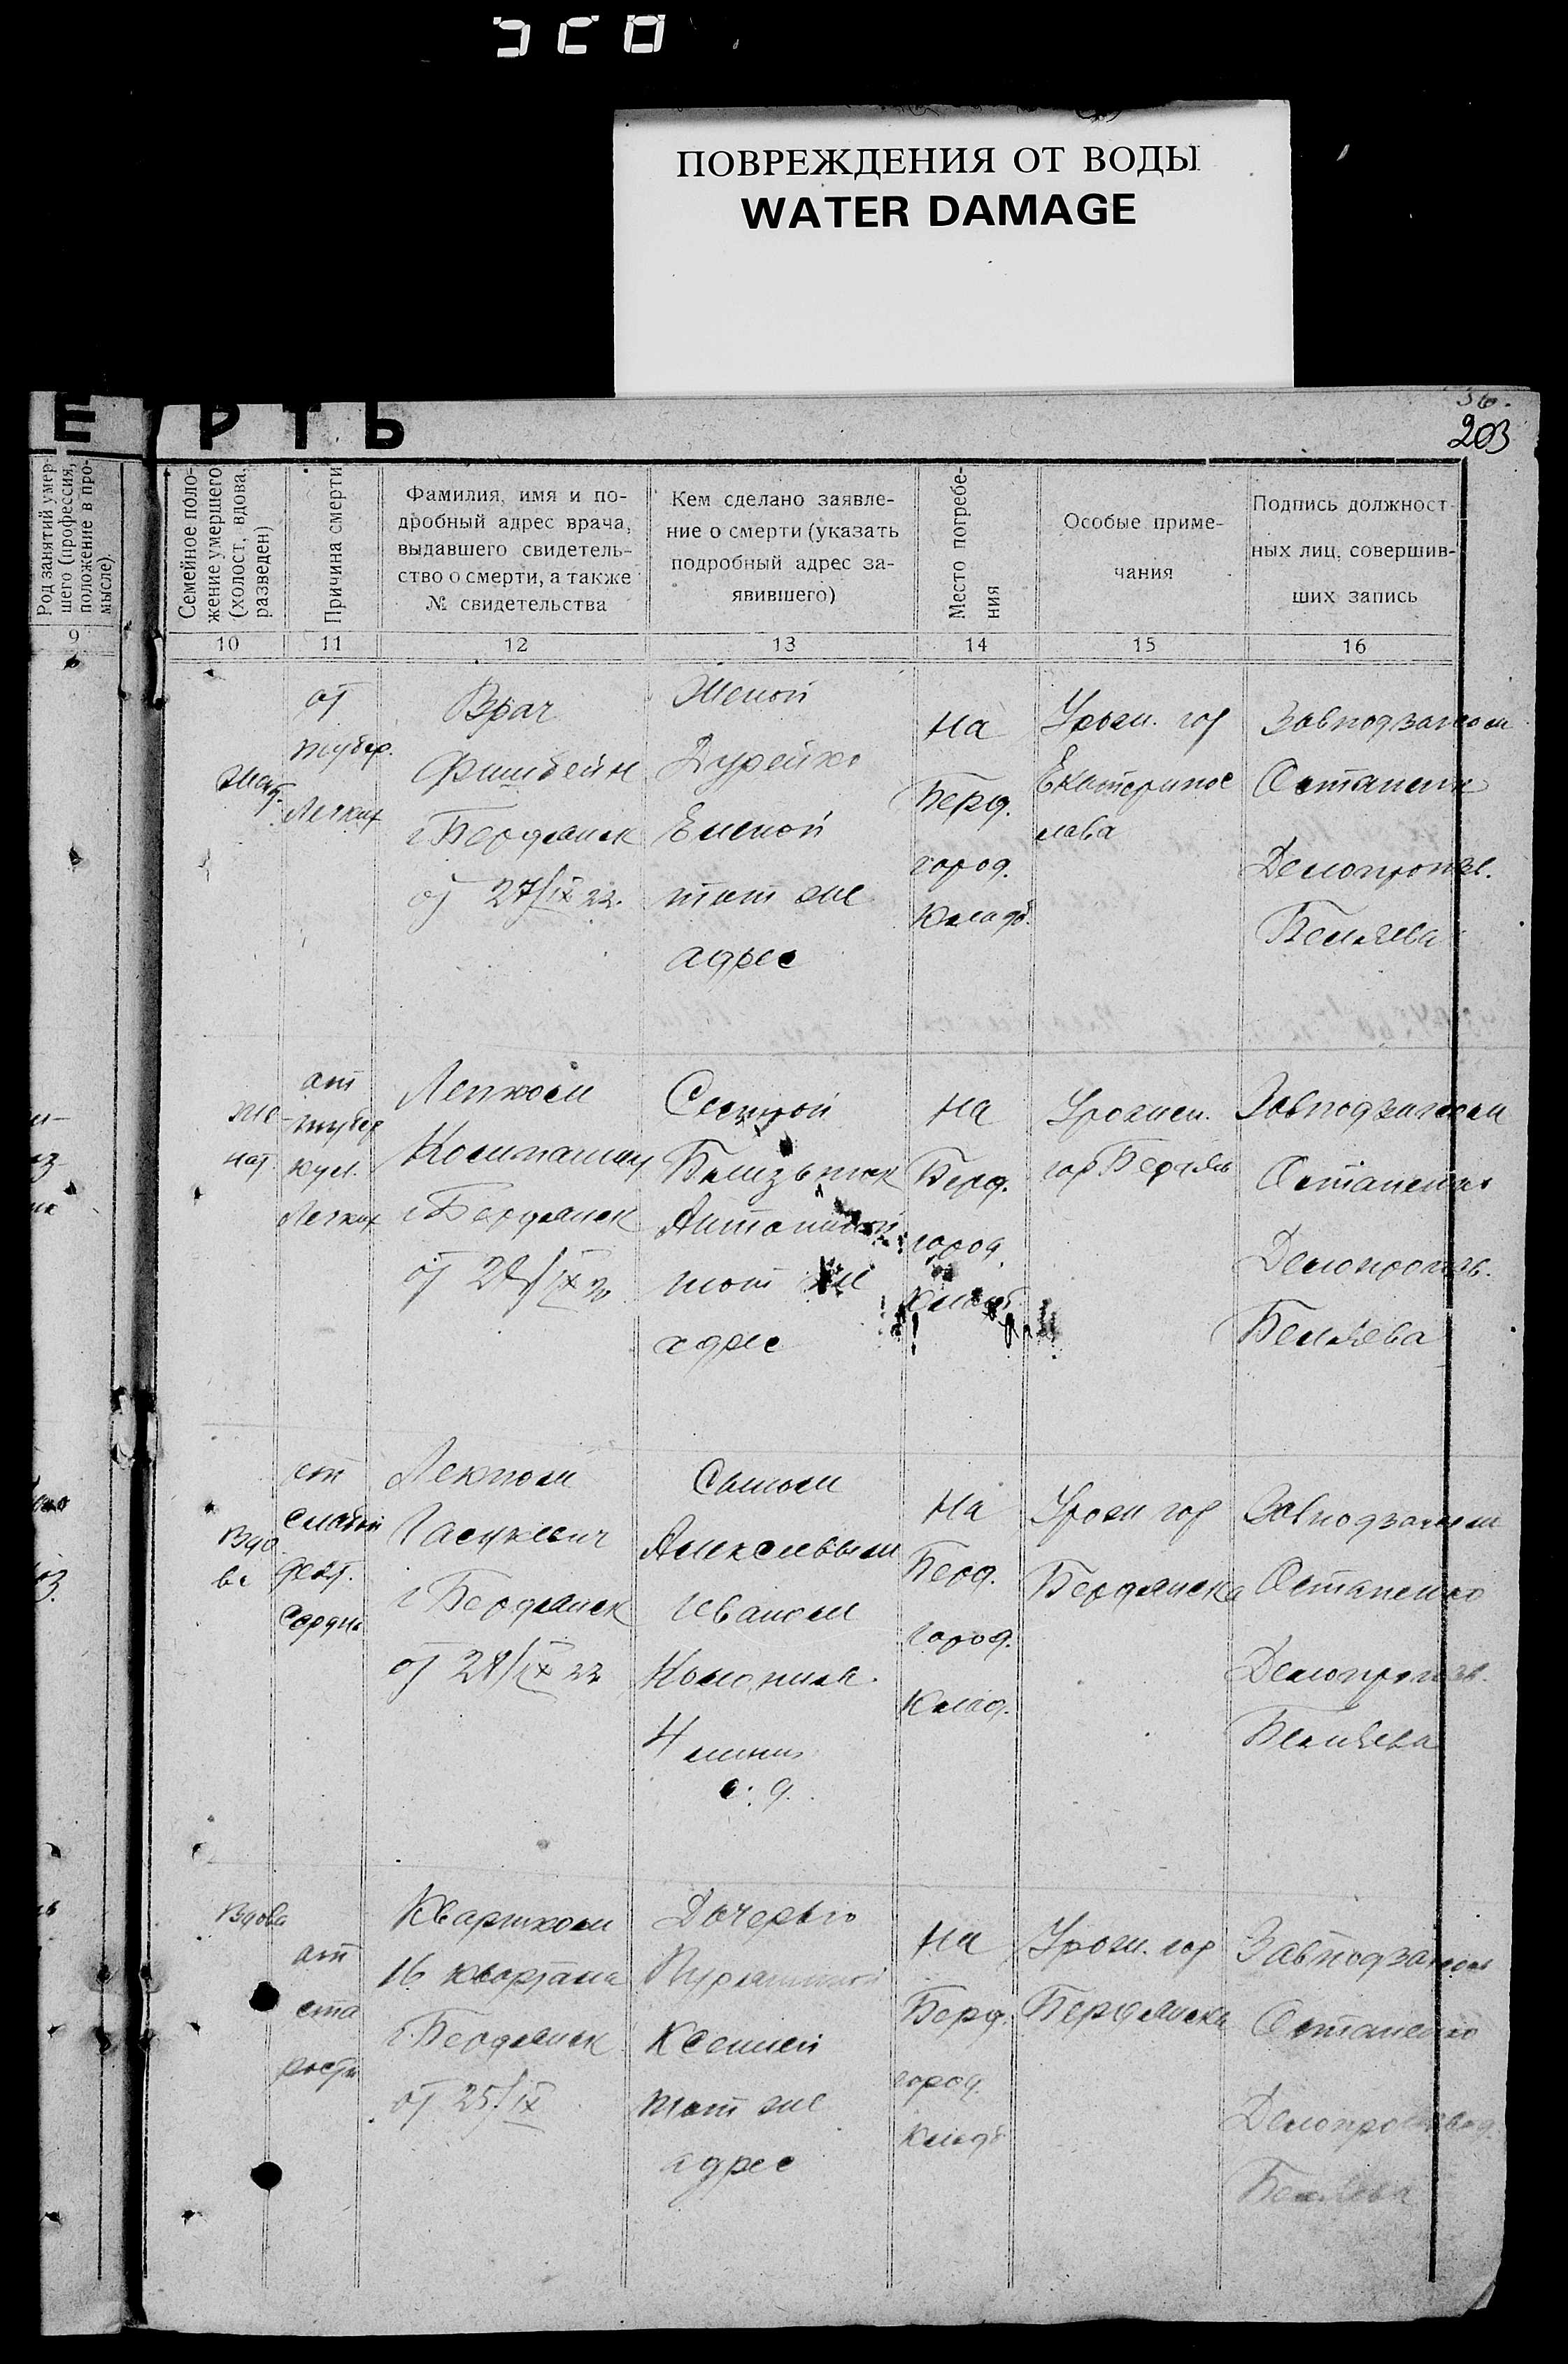 ПОВРЕЖДЕНИЯ ОТ ВОДЫ
WATER DAMAGE
203
Е РТЬ
Род занятий умер-
шего (профессия,
положение в про-
мысле).
Семейное поло-
жение умершего
(холост, вдова,
разведен)
Причина смерти
Фамилия, имя и по-
дробный адрес врача,
выдавшего свидетель-
ство о смерти, а также
№ свидетельства
Кем сделано заявле-
ние о смерти (указать
подробный адрес за-
явившего)
Место погребе-
ния
Особые приме-
чания
Подпись должност-
ных лиц, совершив-
ших запись
9
10
11
12
13
14
15
16
от
тубер.
Легких
Врач
Фишбейн
г Бердянск
от 27/IX 22.
Женой
Дурейко
Еленой
тот же
адрес
На
Берд.
город.
Кладб.
Урож. гор
Екатеринос
лава
Завподзагсом
Остапенко
Делопроизв.
Беляева
же-
нат
от
тубер
кул.
Легких
Лепком
г Бердянск
Сестрой
Антониной
тот же
адрес
На
Берд.
город.
Кладб.
Урожен.
гор Бердян
Завподзагсом
Остапенко
Делопроизв.
Беляева
Вдо
ва
от
слабой
деят.
Сердца
Лекпом
г Бердянск
от 28/IX 22
Сыном
Иваном
4 линия
с. д.
На
Берд.
город.
Клад.
Урож гор
Бердянска
Завподзагсом
Остапенко
Делопроизв.
Беляева
Вдова
от
ста
рости
Квартком
16 квартала
г. Бердянск
от 25/IX
Дочерью
Ксенией
тот же
адрес
На
Берд.
город.
Кладб
Урож. гор
Бердянска
Завподзагсом
Остапенко
Делопроизвод.
Беляева